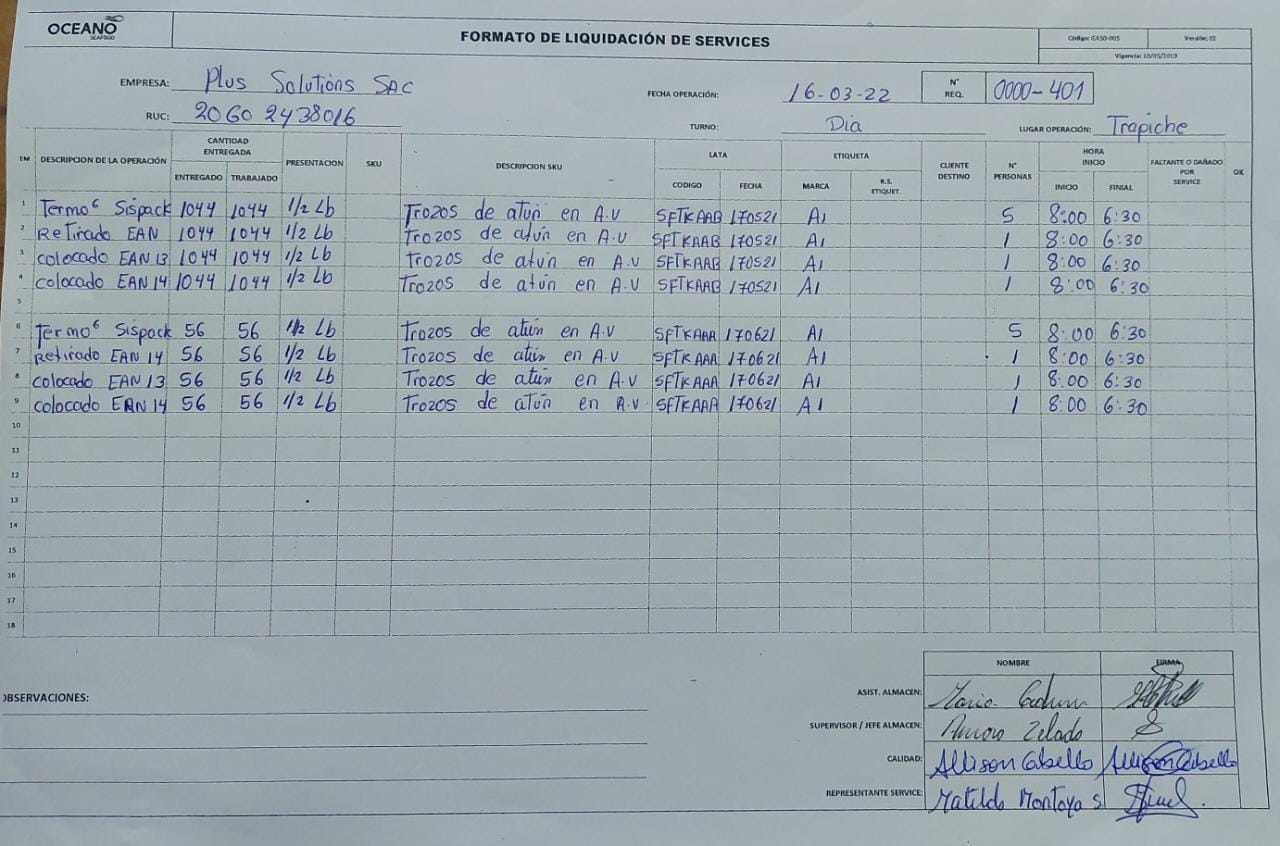 OCEANO
SEAFOOD
FORMATO DE LIQUIDACIÓN DE SERVICES
Código: GASO-005 Versión: 02
Vigencia: 10/05/2019
EMPRESA: Plus Solutions SAC
FECHA OPERACIÓN: 16-03-22
N° REQ. 0000-401
RUC: 20602438016
TURNO: Dia
LUGAR OPERACIÓN: Trapiche
EM DESCRIPCION DE LA OPERACIÓN CANTIDAD ENTREGADA ENTREGADO TRABAJADO PRESENTACION SKU DESCRIPCION SKU LATA CODIGO FECHA ETIQUETA MARCA R.S. ETIQUET. CLIENTE DESTINO N° PERSONAS HORA INICIO INICIO FINIAL FALTANTE O DAÑADO POR SERVICE OK
1 Termo6 Sispack 1044 1044 1/2 Lb Trozos de atún en A.V SFTKAAB 170521 A1 5 8:00 6:30
2 Retirado EAN 1044 1044 1/2 Lb Trozos de atún en A.V SFTKAAB 170521 A1 1 8:00 6:30
3 colocado EAN 13 1044 1044 1/2 Lb Trozos de atún en A.V SFTKAAB 170521 A1 1 8:00 6:30
4 colocado EAN 14 1044 1044 1/2 Lb Trozos de atún en A.V SFTKAAB 170521 A1 1 8:00 6:30
5
6 Termo6 Sispack 56 56 1/2 Lb Trozos de atún en A.V SFTKAAA 170621 A1 5 8:00 6:30
7 Retirado EAN 14 56 56 1/2 Lb Trozos de atún en A.V SFTKAAA 170621 A1 1 8:00 6:30
8 colocado EAN 13 56 56 1/2 Lb Trozos de atún en A.V SFTKAAA 170621 A1 1 8:00 6:30
9 colocado EAN 14 56 56 1/2 Lb Trozos de atún en A.V SFTKAAA 170621 A1 1 8:00 6:30
10
11
12
13
14
15
16
17
18
NOMBRE FIRMA
OBSERVACIONES:
ASIST. ALMACEN: Mario
SUPERVISOR / JEFE ALMACEN: Zelada
CALIDAD: Allison Cabello Allison Cabello
REPRESENTANTE SERVICE: Matilde Montoya S